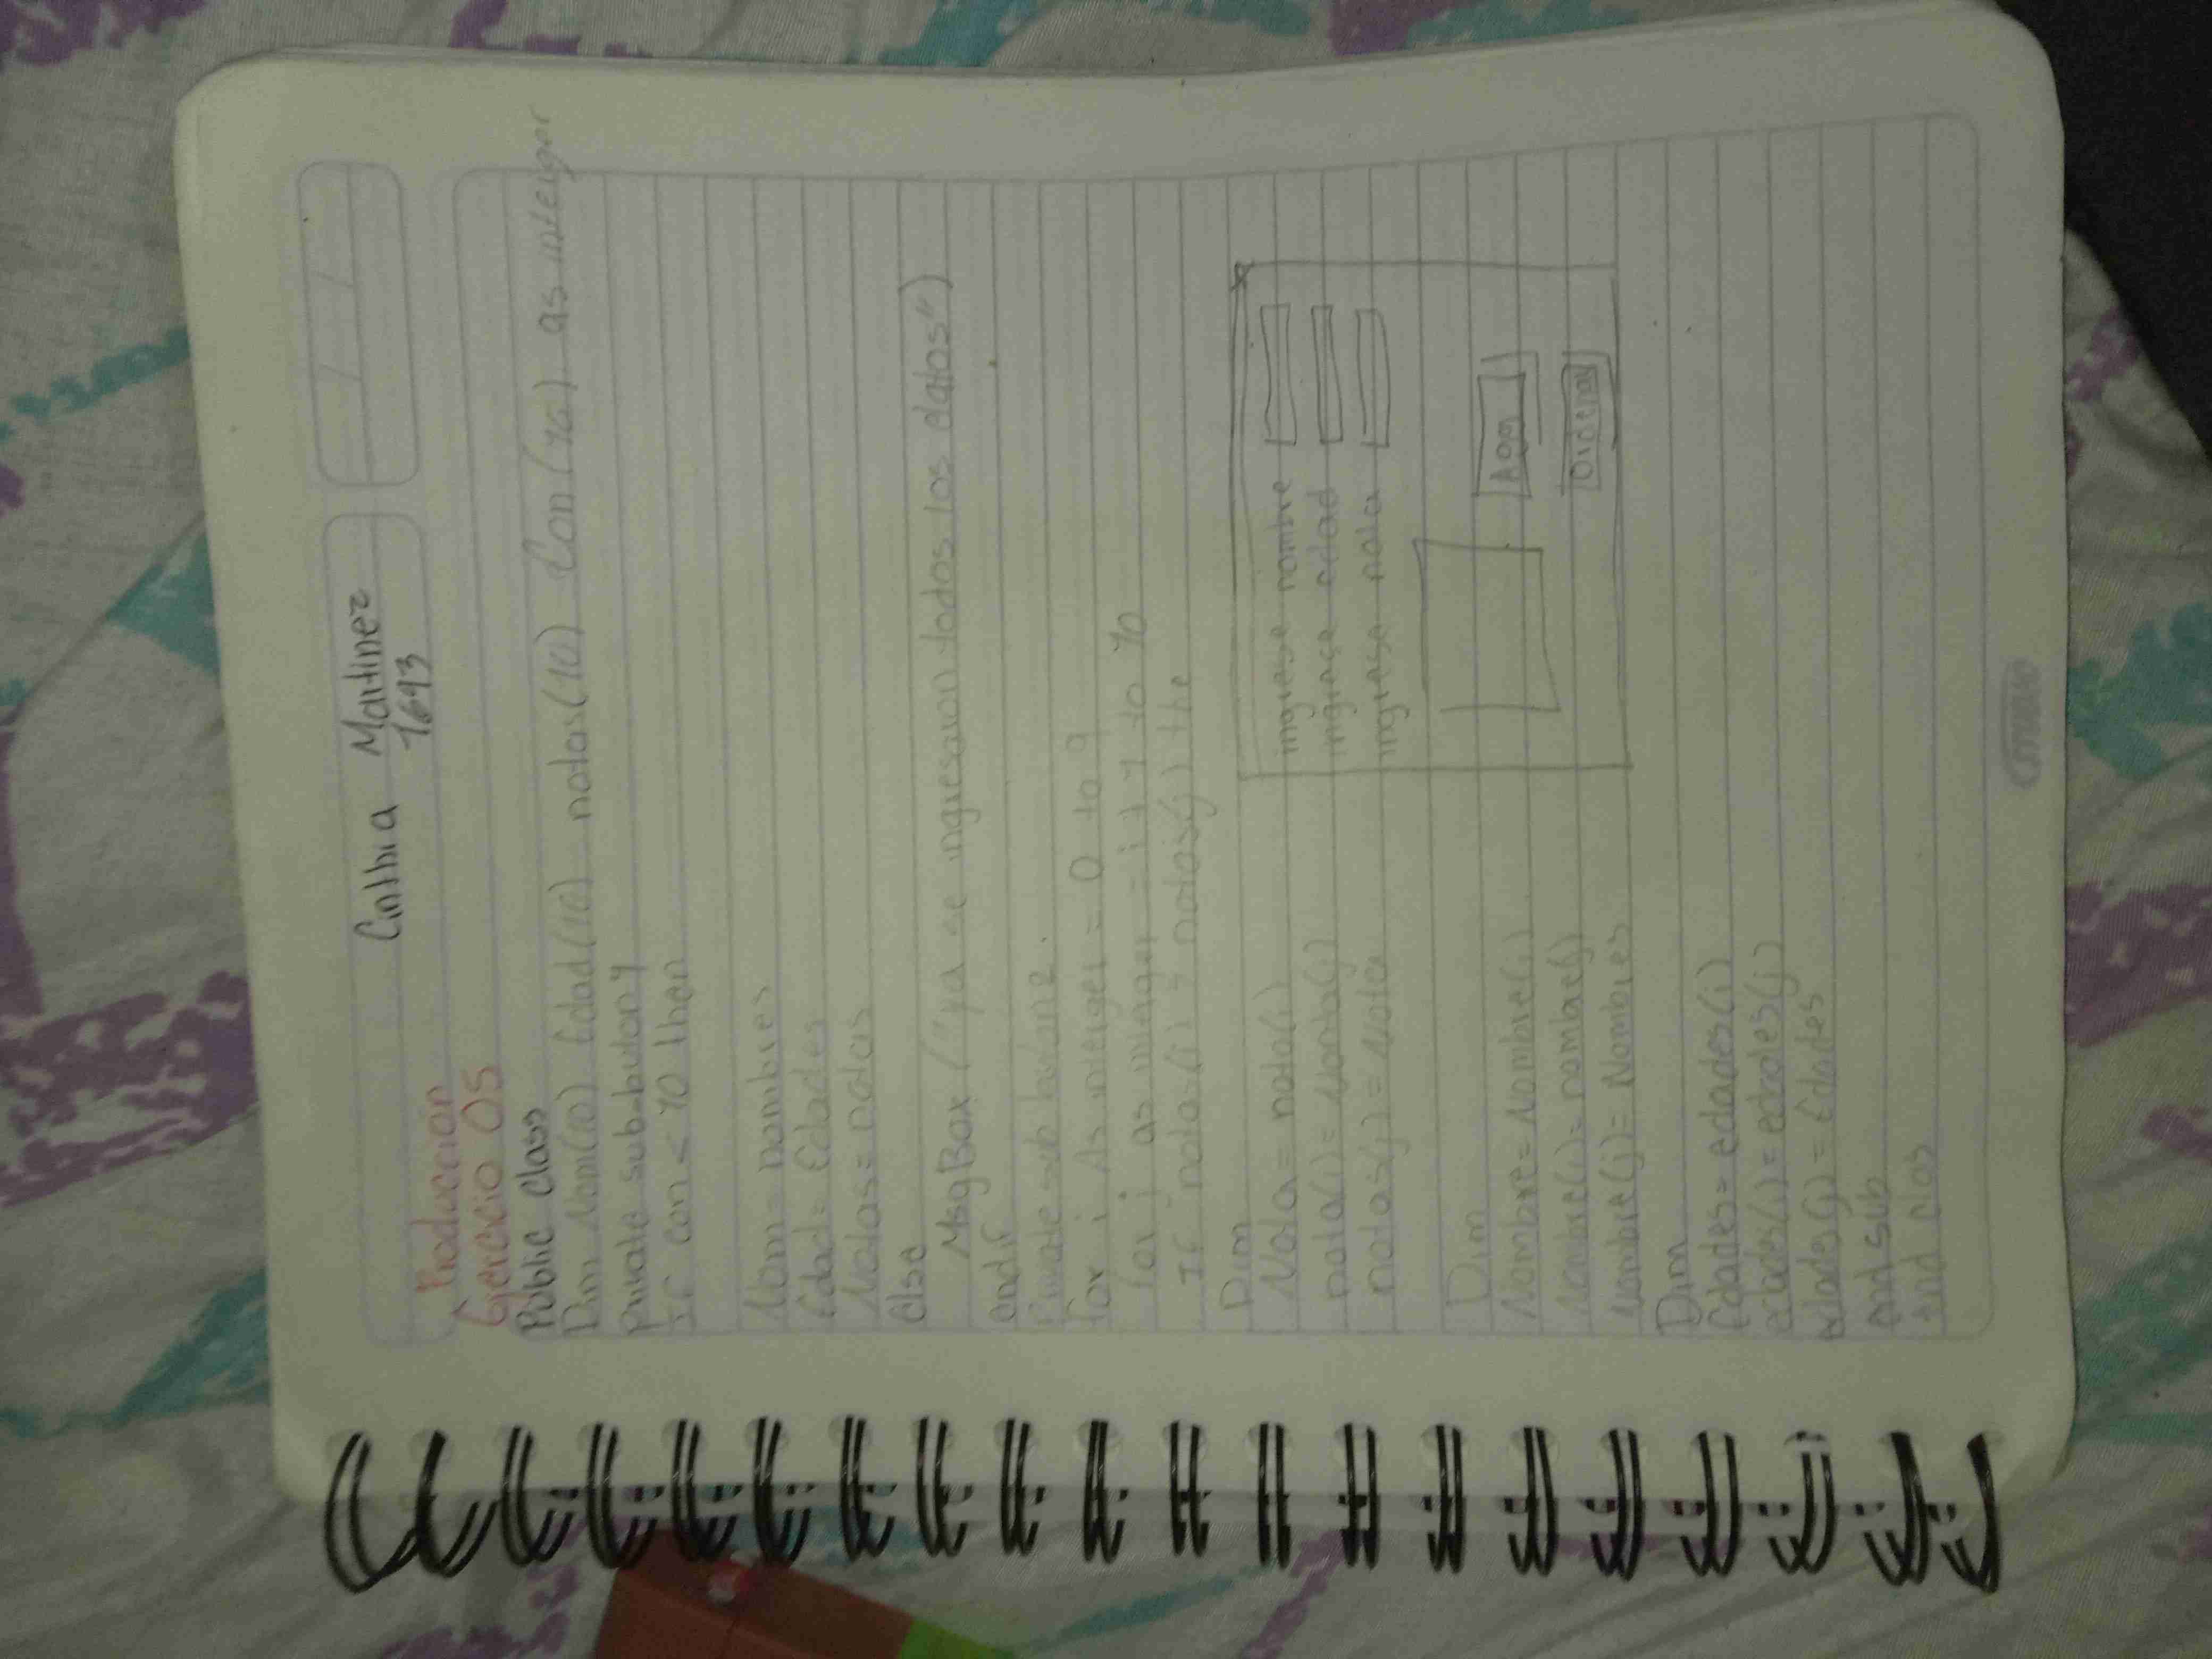 Cinthia Martinez
1693
Produccion
Ejercicio 05
Public class
Dim Nom(10) Edad(10) notas(10) Con(10) as integer
Private sub butony
If con < 10 then
Nom = nombres
Edad = Edades
Notas = notas
else
MsgBox ("ya se ingresaron todos los datos")
endif
Private sub botone2
for i As integer = 0 to 9
for j as integer = i + 1 to 10
If notas(i > notas(j) the
Dim
Nota = nota(i)
nota(i) = Nota(j)
notas(j) = Nota
ingrese nombre
ingrese edad
ingrese nota
Agg
Ordenar
Dim
Nombre = Nombre(i)
Nombre(i) = nombre(j)
Nombre(j) = Nombres
Dim
Edades = edades(i)
edades(i) = edades(j)
edades(j) = Edades
end sub
end clas